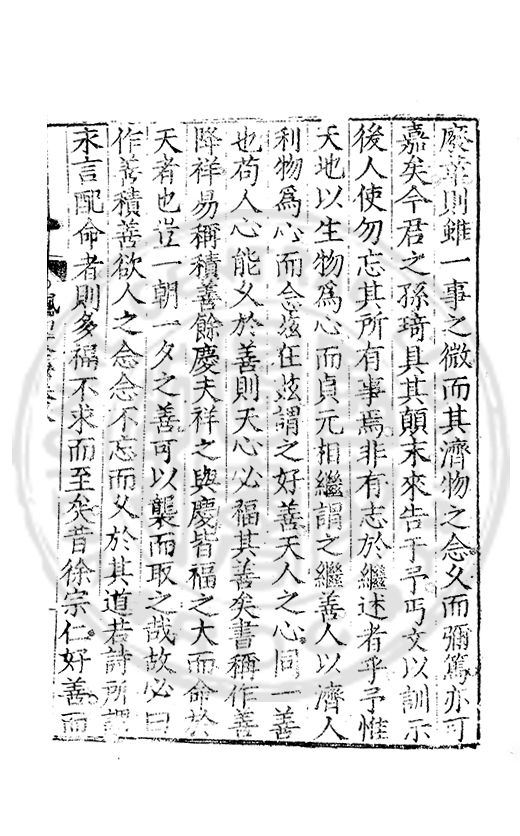 廢葺則雖一事之微而其濟物之念久而彌篤亦可
嘉矣今君之孫琦具其顛末來告于予丐文以訓示
後人使勿忘其所有事焉非有志於繼述者乎予惟
天地以生物爲心而貞元相繼謂之繼善人以濟人
利物爲心而念茲在茲謂之好善天人之心同一善
也苟人心能久於善則天心必福其善矣書稱作善
降祥易稱積善餘慶夫祥之與慶皆福之大而命於
天者也豈一朝一夕之善可以襲而取之哉故必曰
作善積善欲人之念念不忘而久於其道若詩所謂
永言配命者則多福不求而至矣昔徐宗仁好善而